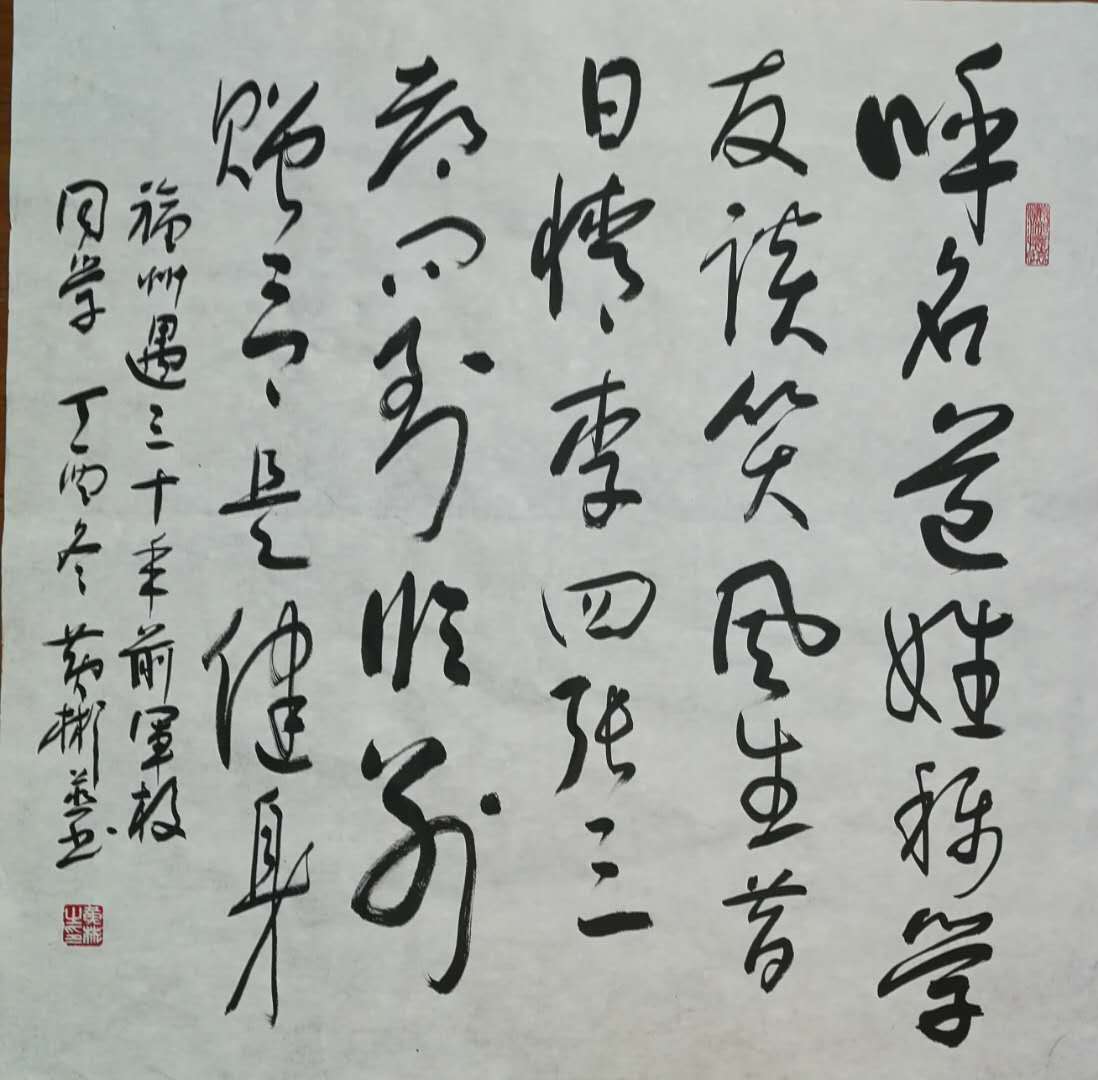 呼名道姓称学
友谈笑风生昔
日情李四张三
都问到临别
赠言是健身
福州遇三十年前军校
同学 丁酉冬 黄彬并书